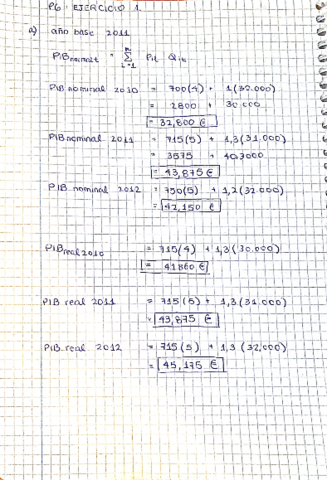 P6 EJERCICIO 1
a) año base 2011
PIB nominal t = Σ Pit Qit
n
i=1
PIB nominal 2010 = 700(4) + 1(30.000)
= 2800 + 30.000
= 32,800 €
PIB nominal 2011 = 715(5) + 1,3(31.000)
= 3575 + 40,3000
= 43,875 €
PIB nominal 2012 = 750(5) + 1,2(32.000)
= 42,150 €
PIB real 2010 = 715(4) + 1,3(30.000)
= 41860 €
PIB real 2011 = 715(5) + 1,3(31.000)
= 43,875 €
PIB real 2012 = 715(5) + 1,3(32,000)
= 45,175 €